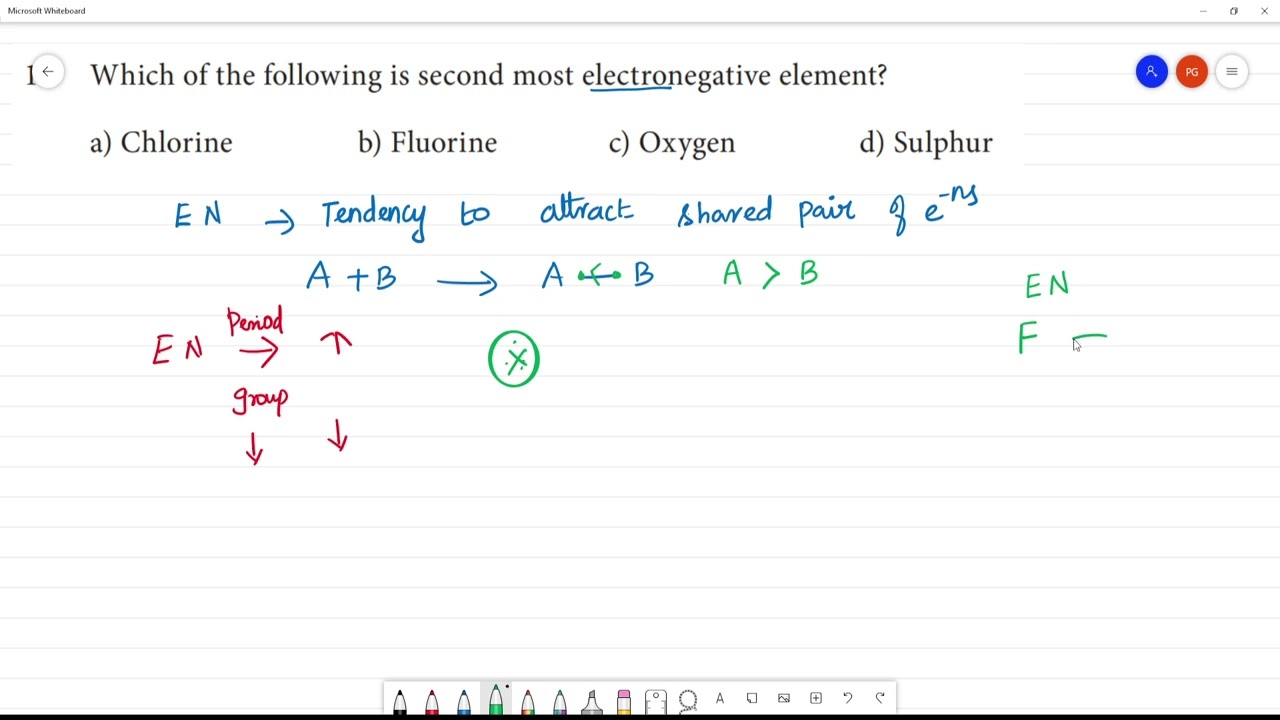 Microsoft Whiteboard
1 Which of the following is second most electronegative element?
PG
a) Chlorine b) Fluorine c) Oxygen d) Sulphur
EN → Tendency to attract shared pair of e⁻ns
A + B → A B A > B
EN
Period
EN → ↑
F
group
↓ ↓
A